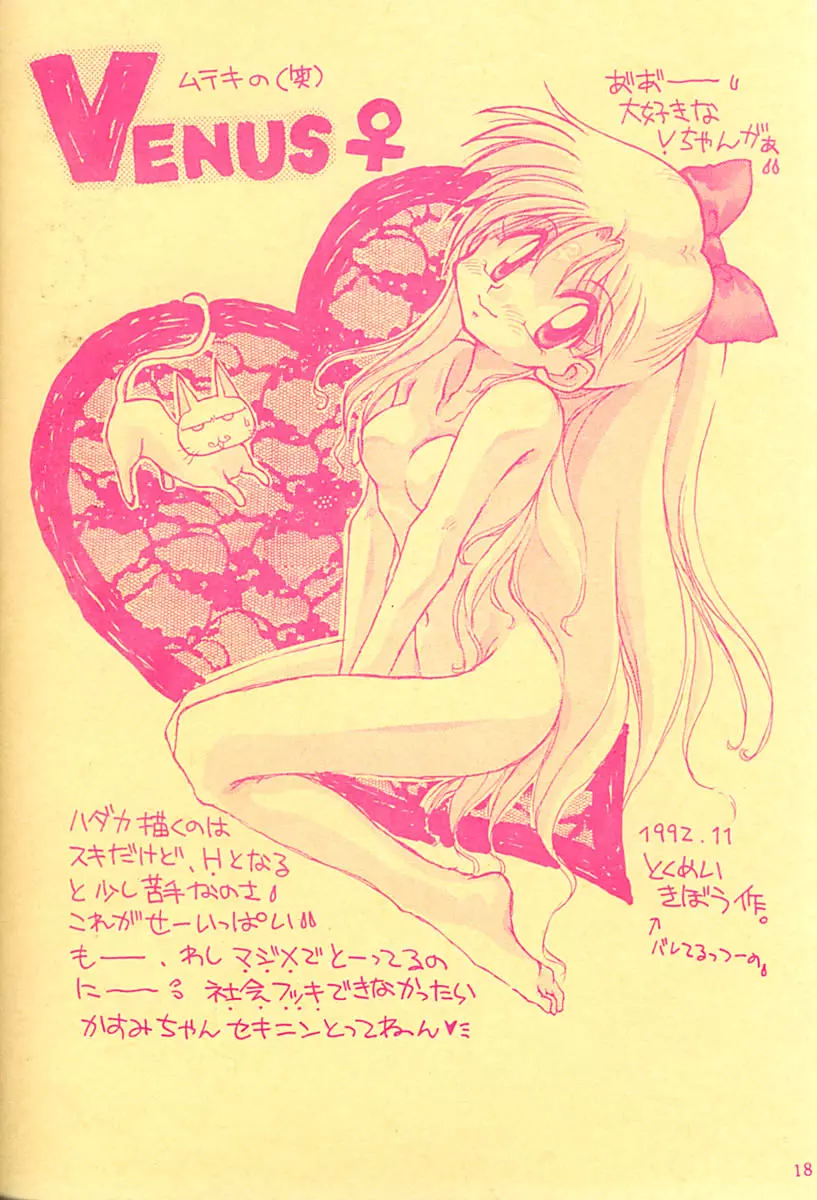 ムテキの(笑)
VENUS♀
あ゛あ゛ーー
大好きな
Vちゃんがぁ
ハダカ描くのは
スキだけど、Hとなる
と少し苦手なのさ
これがせーいっぱい
もーー、わしマジメでとーってるの
にーー 社会フッキできなかったら
かすみちゃん セキニンとってねーん♥
1992.11
とくめい
きぼう作。
↑
バレてるっつーの
18